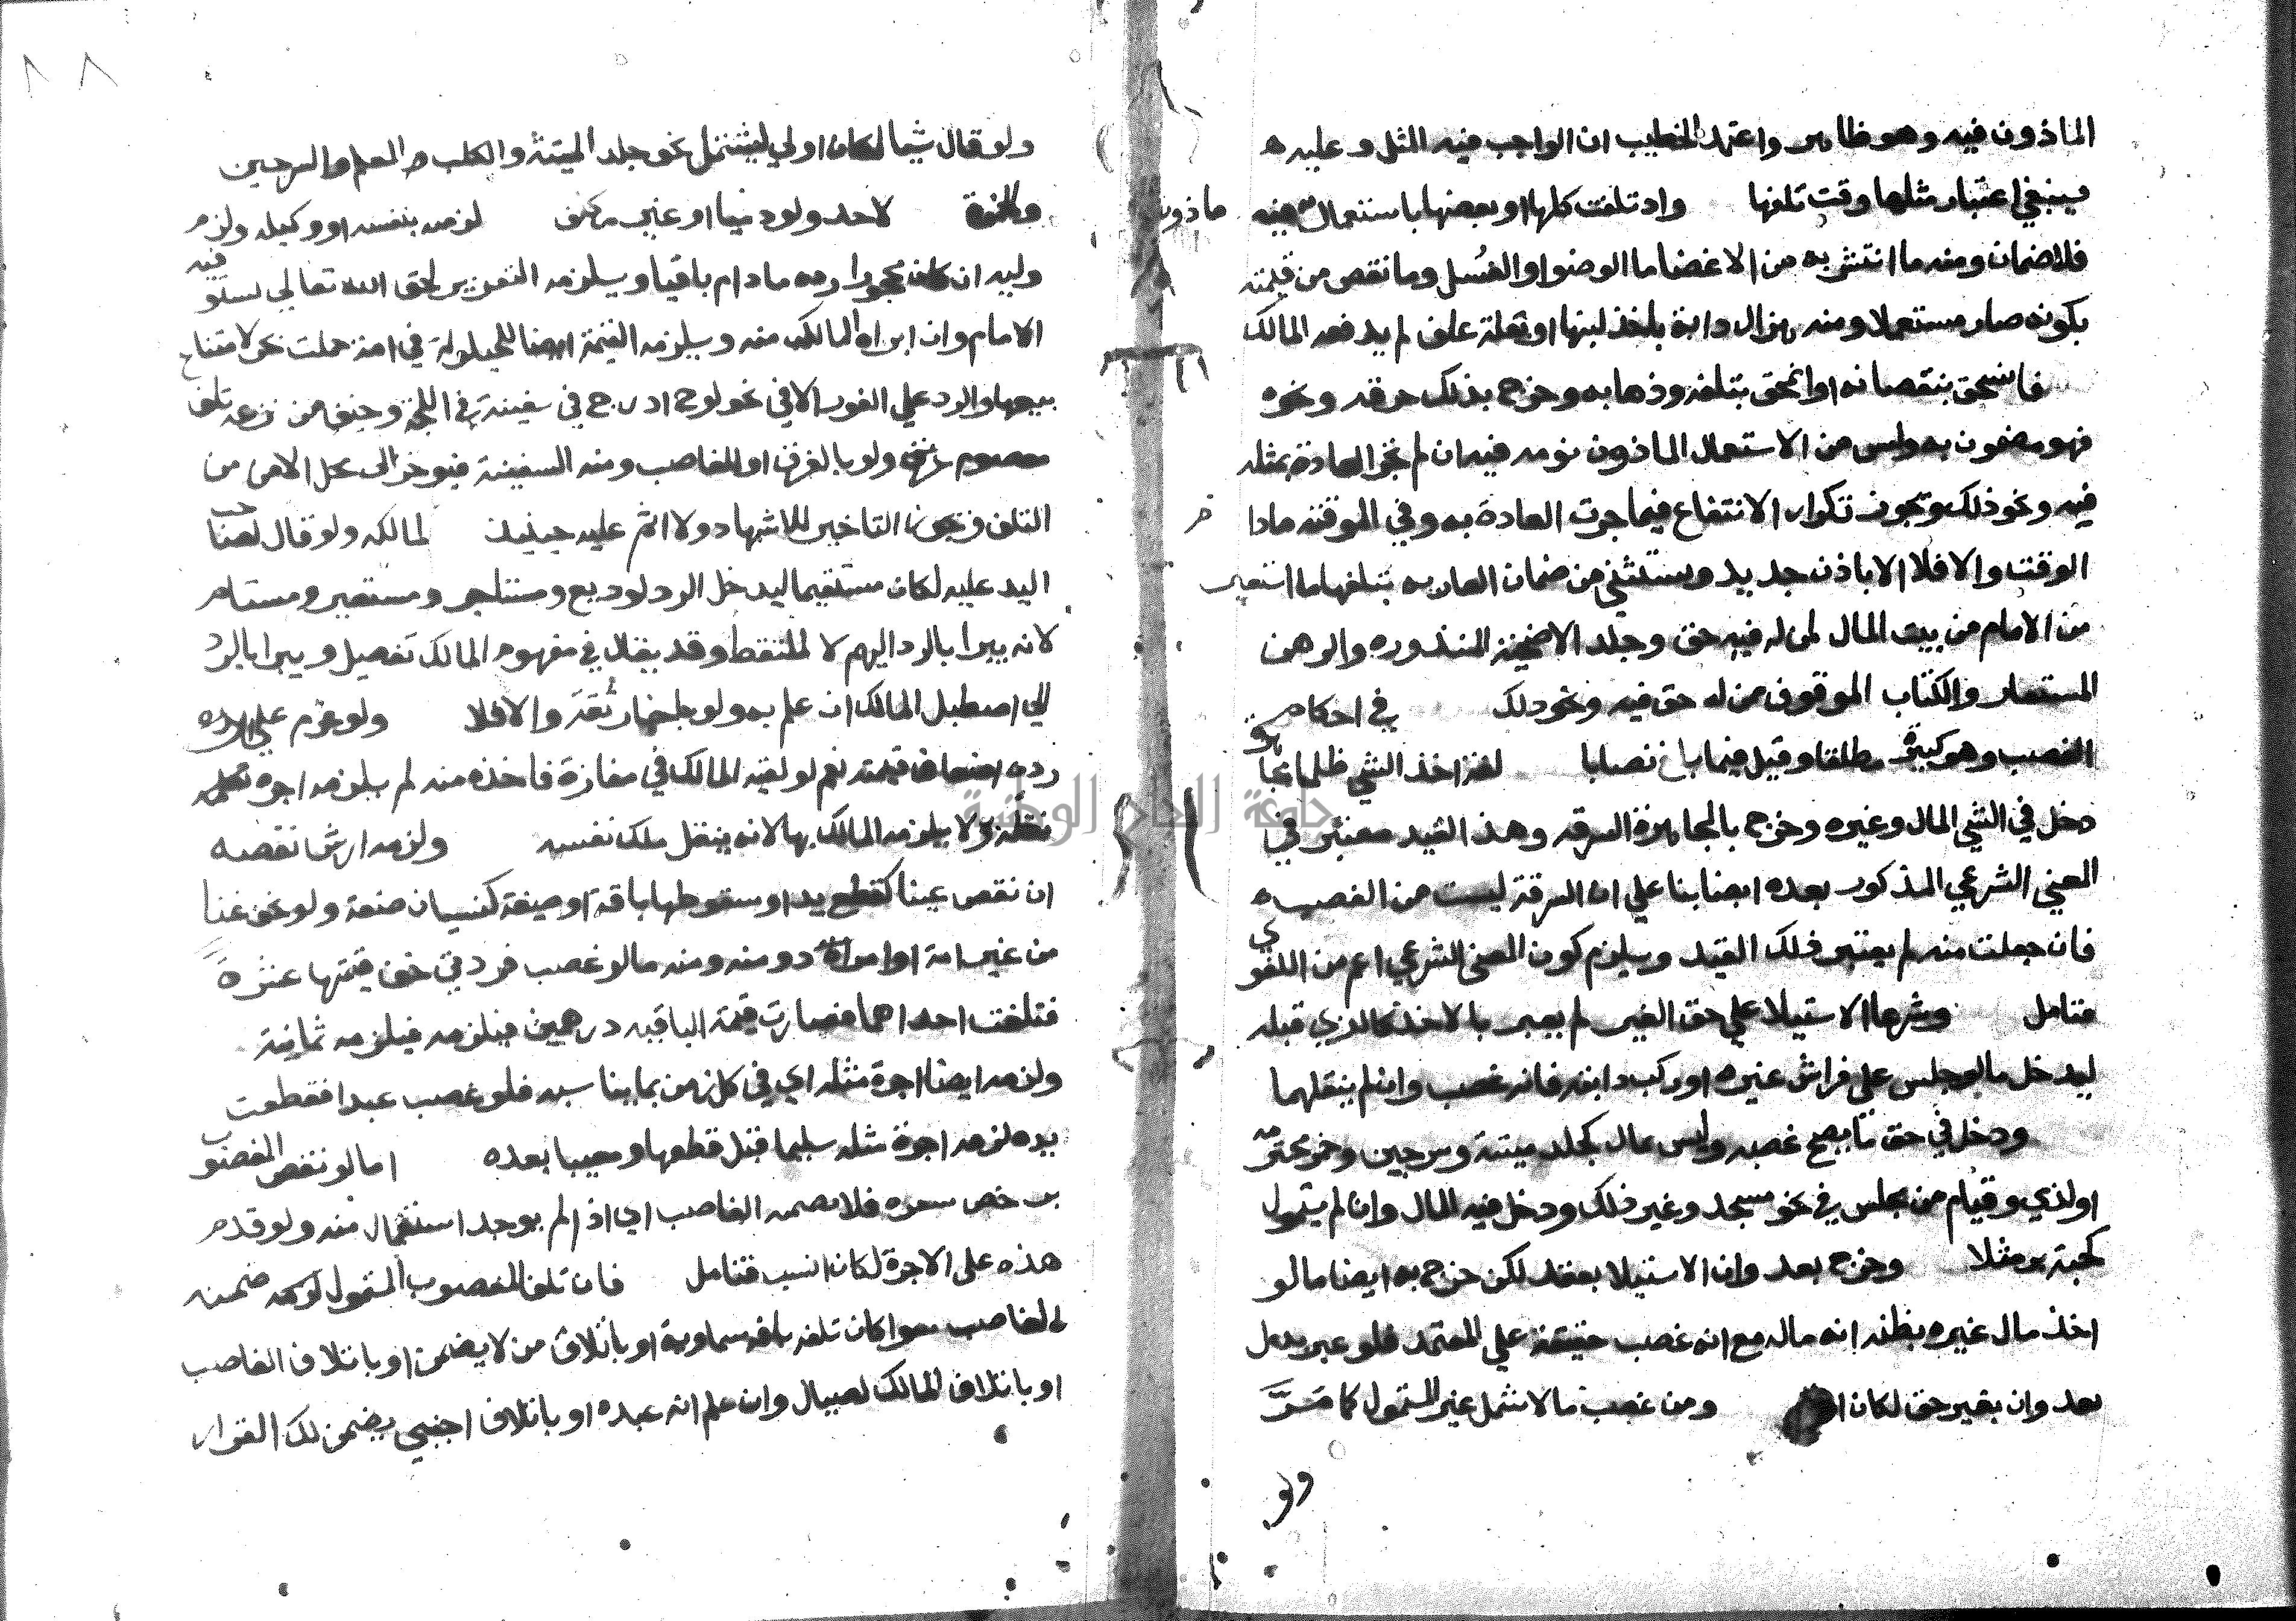 الماذون فيه وهو ظاهر واعتمد الخطيب ان الواجب فيه المثل وعليه
فينبغي اعتبار مثلها وقت تلفها وان تلفت كلها او بعضها باستعمال فيه ماذون
فلا ضمان ومنه ما انتشر به من الاعضا ما الوضوا والغسل وما نقص من قيمته
بكونه صار مستعملا ومنه هزال دابة باخذ لبنها او بقلة علف لم يدفعه المالك
فانسحق بنقصانه او انمحق بتلفه وذهابه وخرج بذلك حرقه ونحوه
فهو مضمون به وليس من الاستعمال الماذون نومه فيه ان لم تجر العادة بمثله
فيه ونحو ذلك ويجوز تكرار الانتفاع فيما جرت العادة به وفي الموقته مادا
الوقت والا فلا الا باذن جديد ويستثنى من ضمان العاريه بتلفها ما استعير
من الامام من بيت المال لمن له فيه حق وجلد الاضحية المنذوره والرهن
المستعار والكتاب الموقوف ممن له حق فيه ونحو ذلك في احكام
الغصب وهو كبيرة مطلقا وقيل فيما بلغ نصابا لغة اخذ الشي ظلما
دخل في الشي المال وغيره وخرج بالمجاهرة السرقه وهذا القيد معتبر في
المعني الشرعي المذكور بعده ايضا بنا علي ان السرقة ليست من الغصب
فان جعلت منه لم يعتبر ذلك القيد ويلزم كون المعني الشرعي اعم من اللغوي
فتامل وشرعا الاستيلا علي حق الغير لم يعبر بالاخذ كالذي قبله
ليدخل ما لو جلس علي فراش غيره او ركب دابته فانه غصب وان لم ينقلهما
ودخل في حق ما يصح غصبه وليس بمال كجلد ميتة وسرجين وخمر محترمه
او لذي وقيام من مجلس في نحو مسجد وغير ذلك ودخل فيه المال وان لم يتمول
كحبة بر مثلا وخرج بعد وان الاستيلا بعقد لكن خرج به ايضا ما لو
اخذ مال غيره بظنه انه ماله مع انه غصب حقيقة علي المعتمد فلو عبر بدل
بعد وان بغير حق لكان ومن غصب مالا شمل غير المتمول كما مر
ولو
ولو قال شيا لكان اولي ليشمل نحو جلد الميتة والكلب المعلم والسرجين
والخمرة لاحد ولو ذميا او غير مكلف لزمه بنفسه او وكيله ولزم
وليه ان كان محجورا رده ما دام باقيا ويلزمه التعزير لحق الله تعالي يستوفيه
الامام وان ابراه المالك منه ويلزمه القيمة ايضا للحيلولة في امة حملت بحر لامتناع
بيعها والرد علي الفور الا في نحو لوح ادرج في سفينة في اللجة وخيف من نزعه تلف
معصوم ولو بالغرق او للغاصب ومنه السفينة فيوخر الى محل الامن من
التلف ويجوز التاخير للاشهاد ولا اثم عليه حينيذ لمالكه ولو قال لصاحب
اليد عليه لكان مستقيما ليدخل الرد لوديع ومستاجر ومستعير ومستام
لانه يبرا بالرد اليهم لا لملتقط وقد يقال في مفهوم المالك تفصيل ويبرا بالرد
الي اصطبل المالك ان علم به ولو باخبار ثقة والا فلا ولو غرم علي
رده اضعاف قيمته نعم لو لقيه المالك في مفازة فاخذه منه لم يلزمه اجرة
نقله ولا يلزمه المالك بها لانه ينقل ملك نفسه ولزمه ارش نقصه
ان نقص عينا كقطع يد او سقوطها باقة او صيفة كنسيان صنعة ولو نحو غنا
من غير امة او امراة دومنه ومنه ما لو غصب فردي خف قيمتها عشرة
فتلفت احداهما فصارت قيمة الباقيه درهمين فيلزمه فيلزمه ثمانية
ولزمه ايضا اجرة مثله اي في كل زمن بما يناسبه فلو غصب عبدا فقطعت
يده لزمه اجرة مثله سليما قبل قطعها ومعيبا بعده اما لو نقص المغصوب
برخص سعره فلا يضمنه الغاصب اي اذ لم يوجد استعمال منه ولو قدم
هذه على الاجرة لكان انسب فتامل فان تلف المغصوب المتمول ضمنه
الغاصب سوا كان تلفه بافة سماوية او باتلاف من لا يضمن او باتلاف الغاصب
او باتلاف المالك لصيال وان علم انه عبده او باتلاف اجنبي يضمن لكن القرار